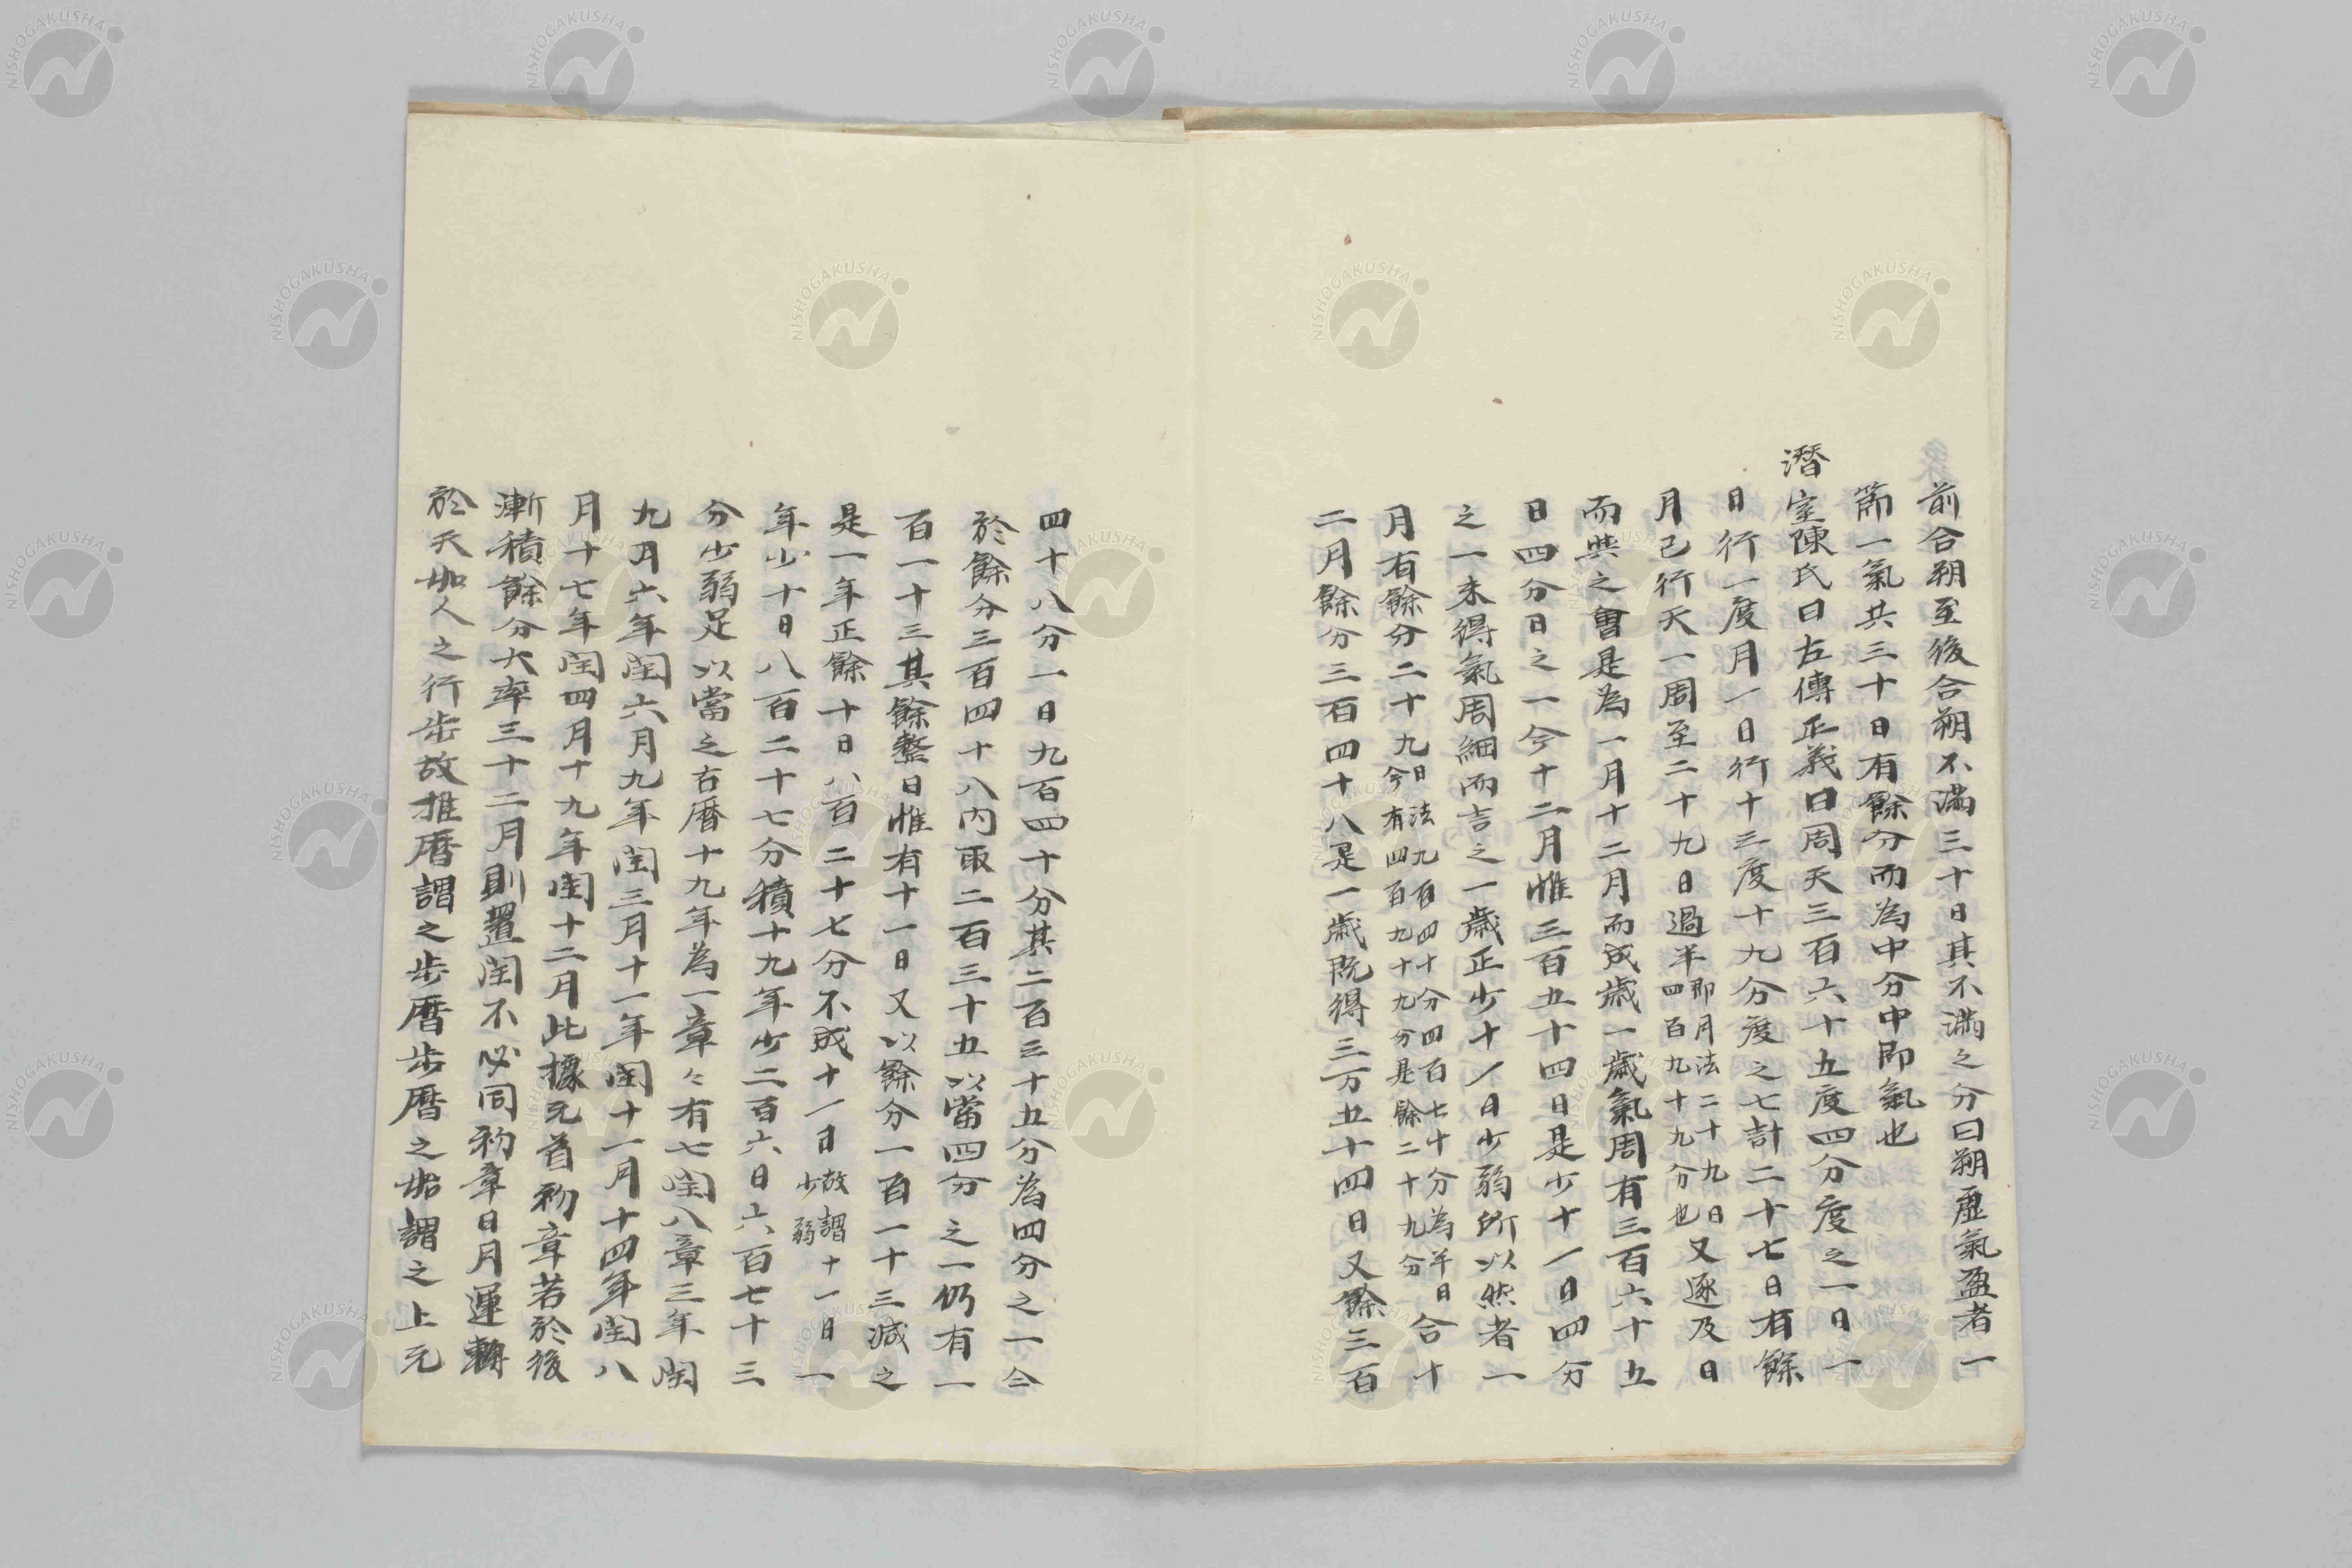 前合朔至後合朔不滿三十日其不滿之分曰朔虛氣盈者一
節一氣共三十日有餘分而為中分中即氣也
潛室陳氏曰左傳正義曰周天三百六十五度四分度之一日一
日行一度月一日行十三度十九分度之七計二十七日有餘
月已行天一周至二十九日過半即月法二十九日四百九十九分也又逐及日
而與之會是為一月十二月而成歲一歲氣周有三百六十五
日四分日之一今十二月惟三百五十四日是少十一日四分
之一未得氣周細而言之一歲正少十一日少弱所以然者一
月有餘分二十九日法九百四十分四百七十分為半日今有四百九十九分是餘二十九分合十
二月餘分三百四十八是一歲既得三万五十四日又餘三百
四十八分一日九百四十分其二百三十五分為四分之一今
於餘分三百四十八內取二百三十五以當四分之一仍有一
百一十三其餘整日惟有十一日又以餘分一百一十三減之
是一年正餘十日八百二十七分不成十一日故謂十一日少弱一
年少十日八百二十七分積十九年少二百六日六百七十三
分少弱足以當之古曆十九年為一章々有七閏八章三年閏
九月六年閏六月九年閏三月十一年閏十一月十四年閏八
月十七年閏四月十九年閏十二月此據元首初章若於後
漸積餘分大率三十二月則置閏不必同初章日月運轉
於天如人之行步故推曆謂之步曆步曆之始謂之上元
NISHOGAKUSHA